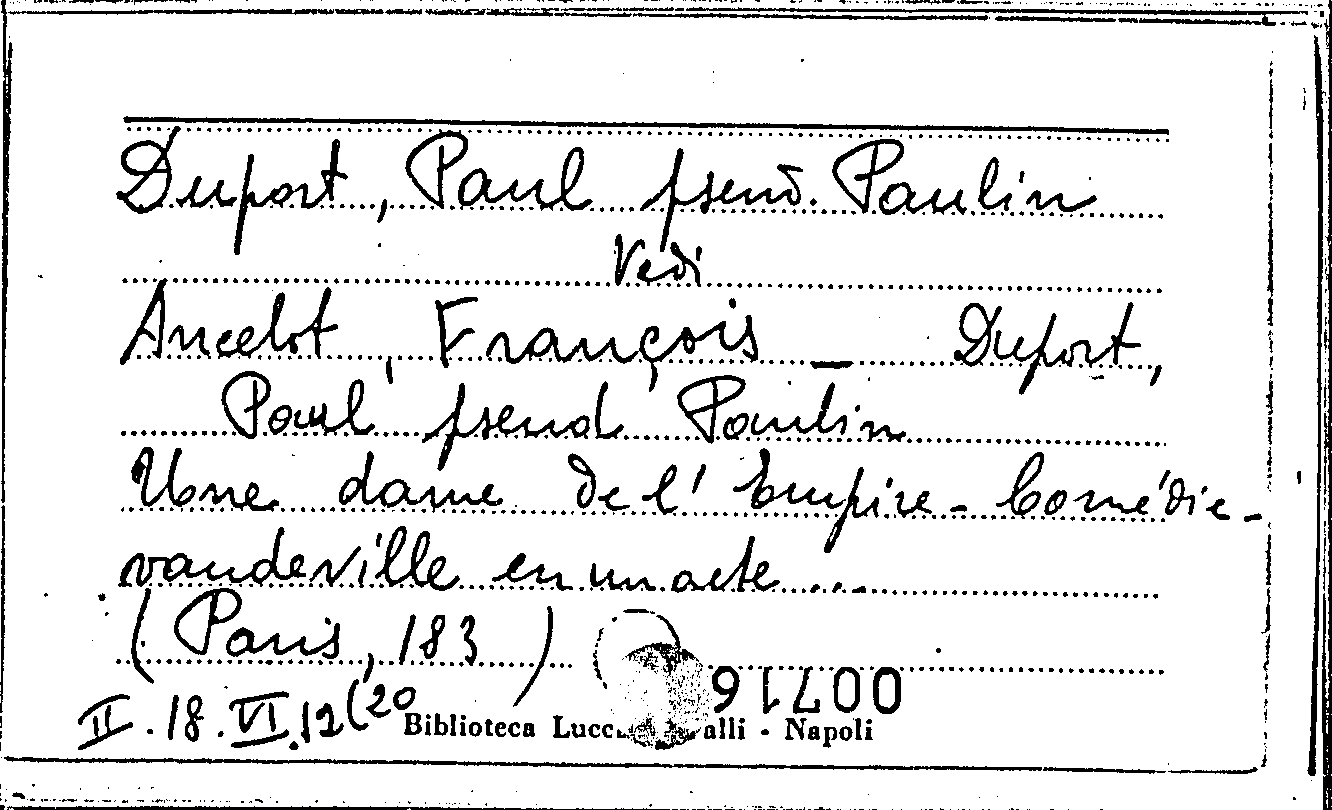 Duport, Paul pseud. Paulin
Vedi
Ancelot, François _ Duport,
Paul pseud Paulin
Une dame de l'Empire - Comédie-
vaudeville en un acte ...
(Paris, 183 )
00716
II. 18. VI. 12 (20
Biblioteca Lucc alli - Napoli